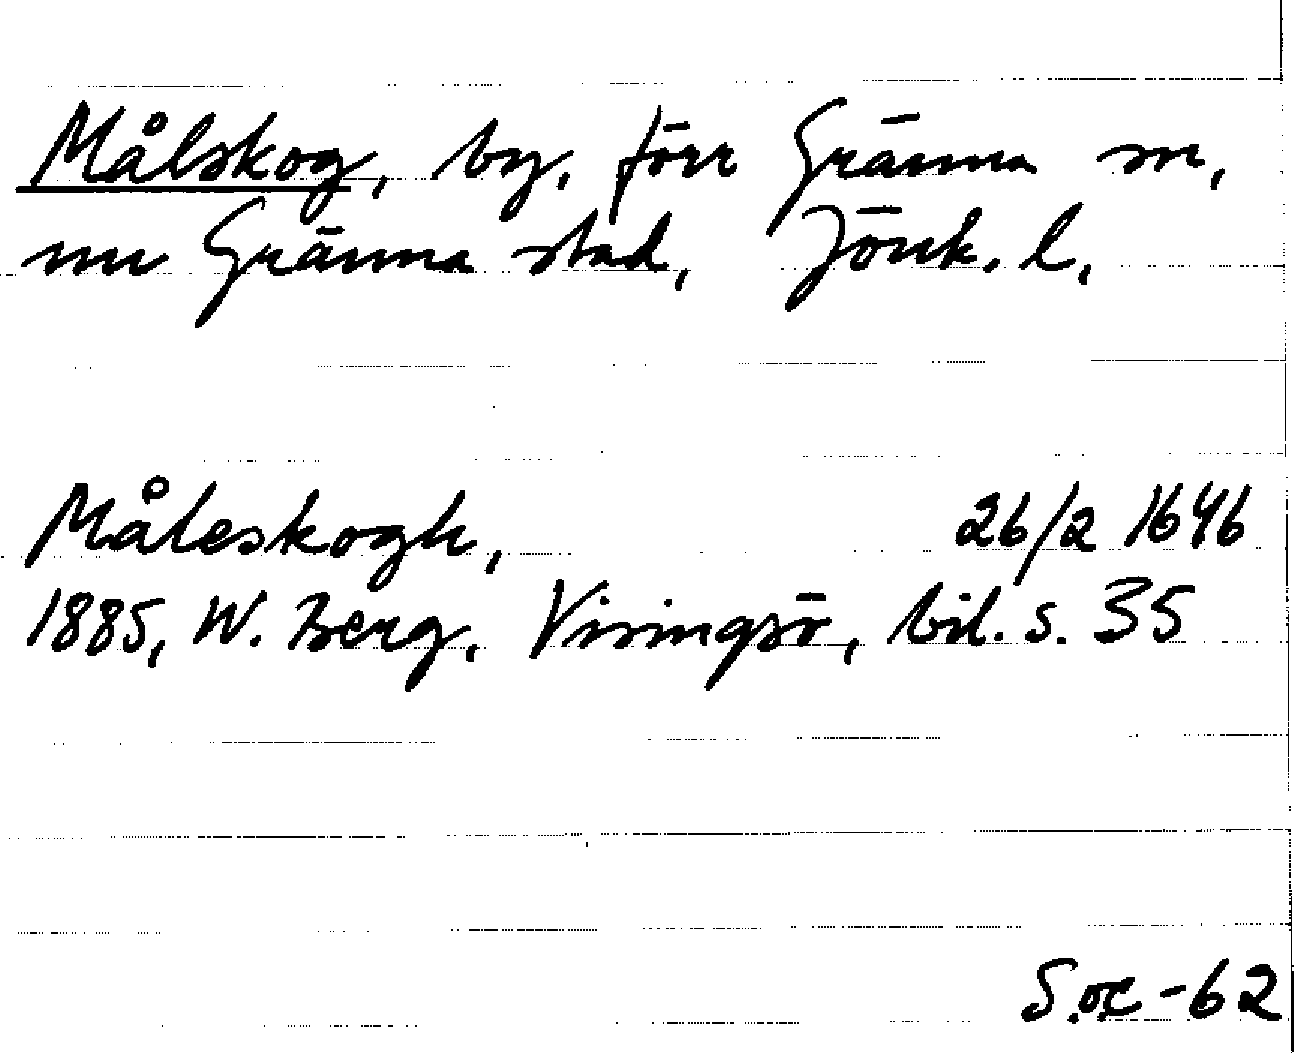 Målskog, by, förr Gränna sn,
nu Gränna stad, Jönk. l.
Måleskogh, 26/2 1646
1885, W. Berg, Visingsö, bil. s. 35
S.oc -62